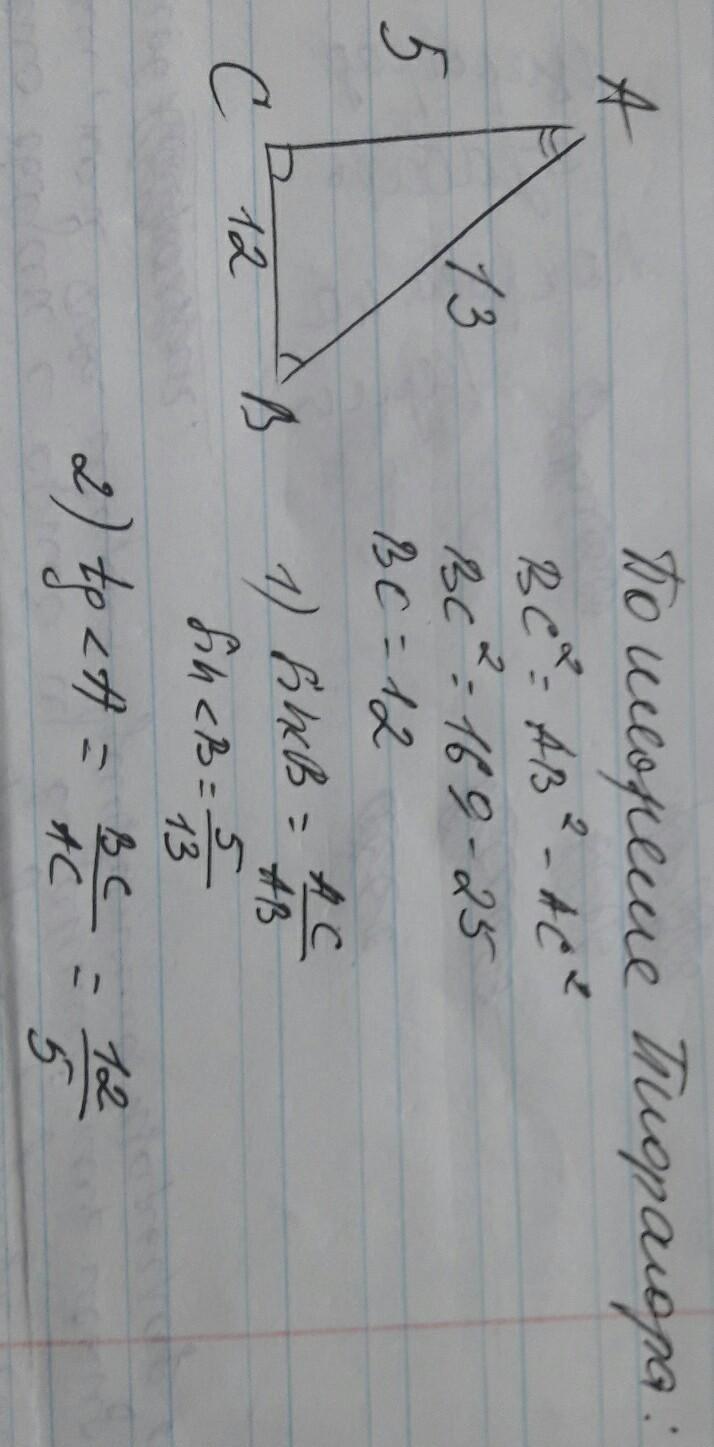 A
5
13
C
12
B
По теореме Пифагора:
BC² = AB² - AC²
BC² = 169 - 25
BC = 12
1) sin<B = AC/AB
sin <B = 5/13
2) tg <A = BC/AC = 12/5